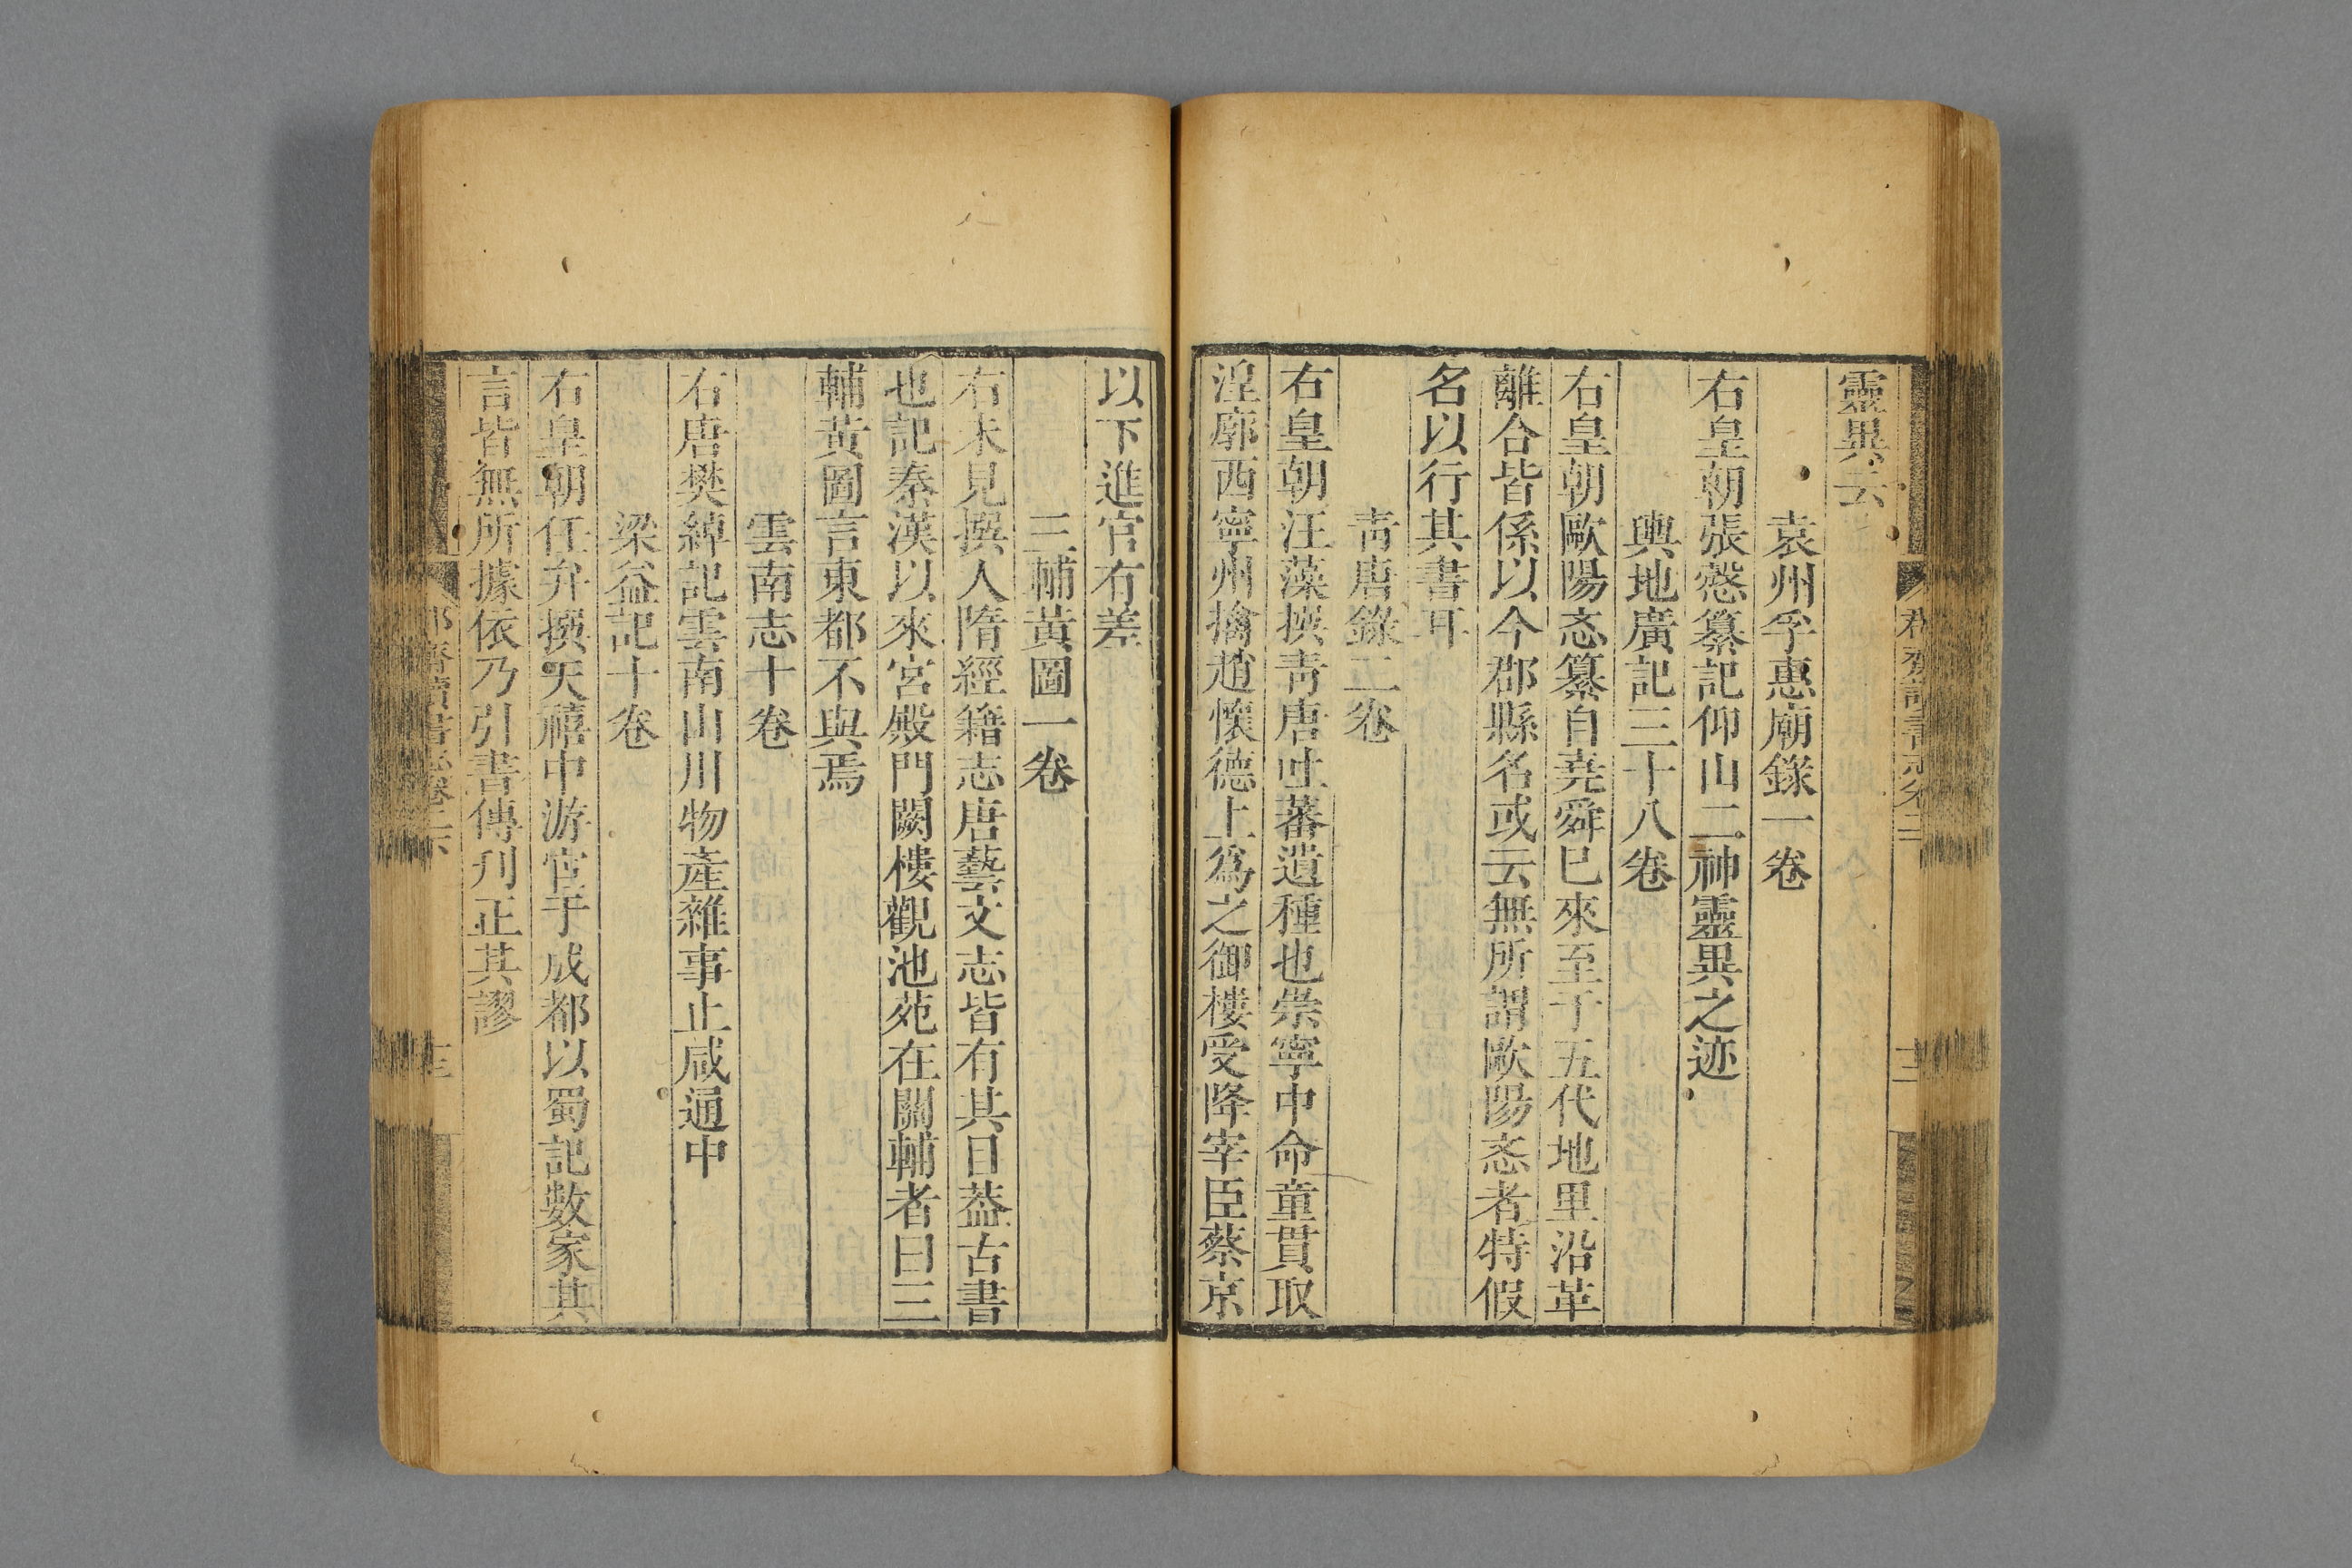 靈異云
袁州孚惠廟錄一卷
右皇朝張愨纂記仰山二神靈異之迹
輿地廣記三十八卷
右皇朝歐陽忞纂自堯舜已來至于五代地里沿革
離合皆係以今郡縣名或云無所謂歐陽忞者特假
名以行其書耳
靑唐錄二卷
右皇朝汪藻撰靑唐吐蕃遺種也崇寧中命童貫取
湟廓西寧州擒趙懷德上爲之御樓受降宰臣蔡京
以下進官有差
三輔黃圖一卷
右未見撰人隋經籍志唐藝文志皆有其目葢古書
也記秦漢以來宮殿門闕樓觀池苑在關輔者曰三
輔黃圖言東都不與焉
雲南志十卷
右唐樊綽記雲南山川物產雜事止咸通中
梁益記十卷
右皇朝任弁撰天禧中游宦于成都以蜀記數家其
言皆無所據依乃引書傳刋正其謬